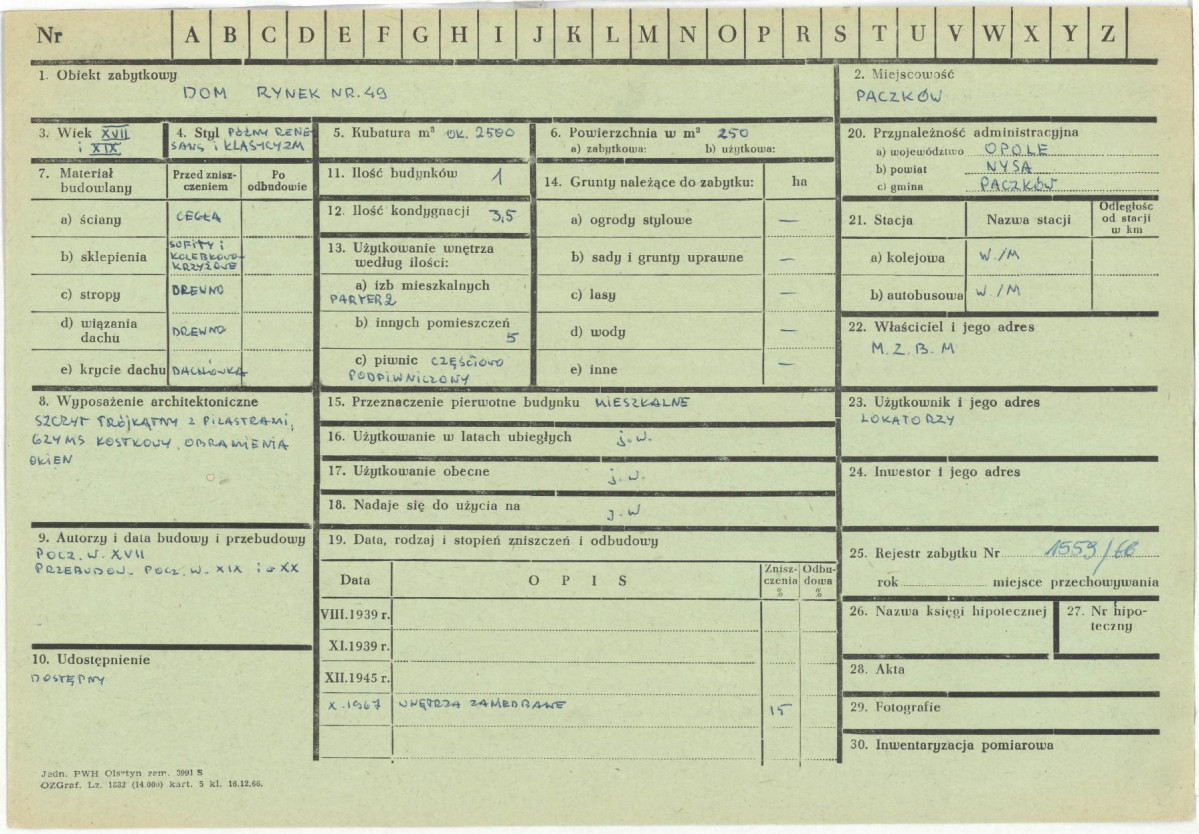 Nr A B C D E F G H I J K L M N O P R S T U V W X Y Z
1. Obiekt zabytkowy
DOM RYNEK NR. 49
2. Miejscowość
PACZKÓW
3. Wiek XVII
i XIX
4. Styl PÓŹNY RENE-
SANS i KLASYCYZM
5. Kubatura m³ OK. 2500
6. Powierzchnia w m² 250
a) zabytkowa: b) użytkowa:
7. Materiał
budowlany
Przed znisz-
czeniem
Po
odbudowie
a) ściany CEGŁA
b) sklepienia SUFITY i
KOLEBKOWO-
KRZYŻOWE
c) stropy DREWNO
d) wiązania
dachu DREWNO
e) krycie dachu DACHÓWKA
8. Wyposażenie architektoniczne
SZCZYT TRÓJKĄTNY Z PILASTRAMI,
GZYMS KOSTKOWY, OBRAMIENIA
OKIEN
9. Autorzy i data budowy i przebudowy
POCZ. W. XVII
PRZEBUDOW. POCZ. W. XIX i XX
10. Udostępnienie
DOSTĘPNY
11. Ilość budynków 1
12. Ilość kondygnacji 3,5
13. Użytkowanie wnętrza
według ilości:
a) izb mieszkalnych
PARTER 2
b) innych pomieszczeń
5
c) piwnic CZĘŚCIOWO
PODPIWNICZONY
14. Grunty należące do zabytku: ha
a) ogrody stylowe —
b) sady i grunty uprawne —
c) lasy —
d) wody —
e) inne —
15. Przeznaczenie pierwotne budynku MIESZKALNE
16. Użytkowanie w latach ubiegłych j.w.
17. Użytkowanie obecne j.w.
18. Nadaje się do użycia na j.w
19. Data, rodzaj i stopień zniszczeń i odbudowy
Data O P I S Znisz-
czenia
% Odbu-
dowa
%
VIII.1939 r.
XI.1939 r.
XII.1945 r.
X.1967 WNĘTRZA ZANIEDBANE 15
20. Przynależność administracyjna
a) województwo OPOLE
b) powiat NYSA
c) gmina PACZKÓW
21. Stacja Nazwa stacji Odległość
od stacji
w km
a) kolejowa W./M
b) autobusowa W./M
22. Właściciel i jego adres
M.Z.B.M
23. Użytkownik i jego adres
LOKATORZY
24. Inwestor i jego adres
25. Rejestr zabytku Nr 1559/66
rok miejsce przechowywania
26. Nazwa księgi hipotecznej
27. Nr hipo-
teczny
28. Akta
29. Fotografie
30. Inwentaryzacja pomiarowa
Jedn. PWH Olsztyn zam. 3991 S
OZGraf. Lz. 1832 (14.000) kart. 5 kl. 16.12.66.